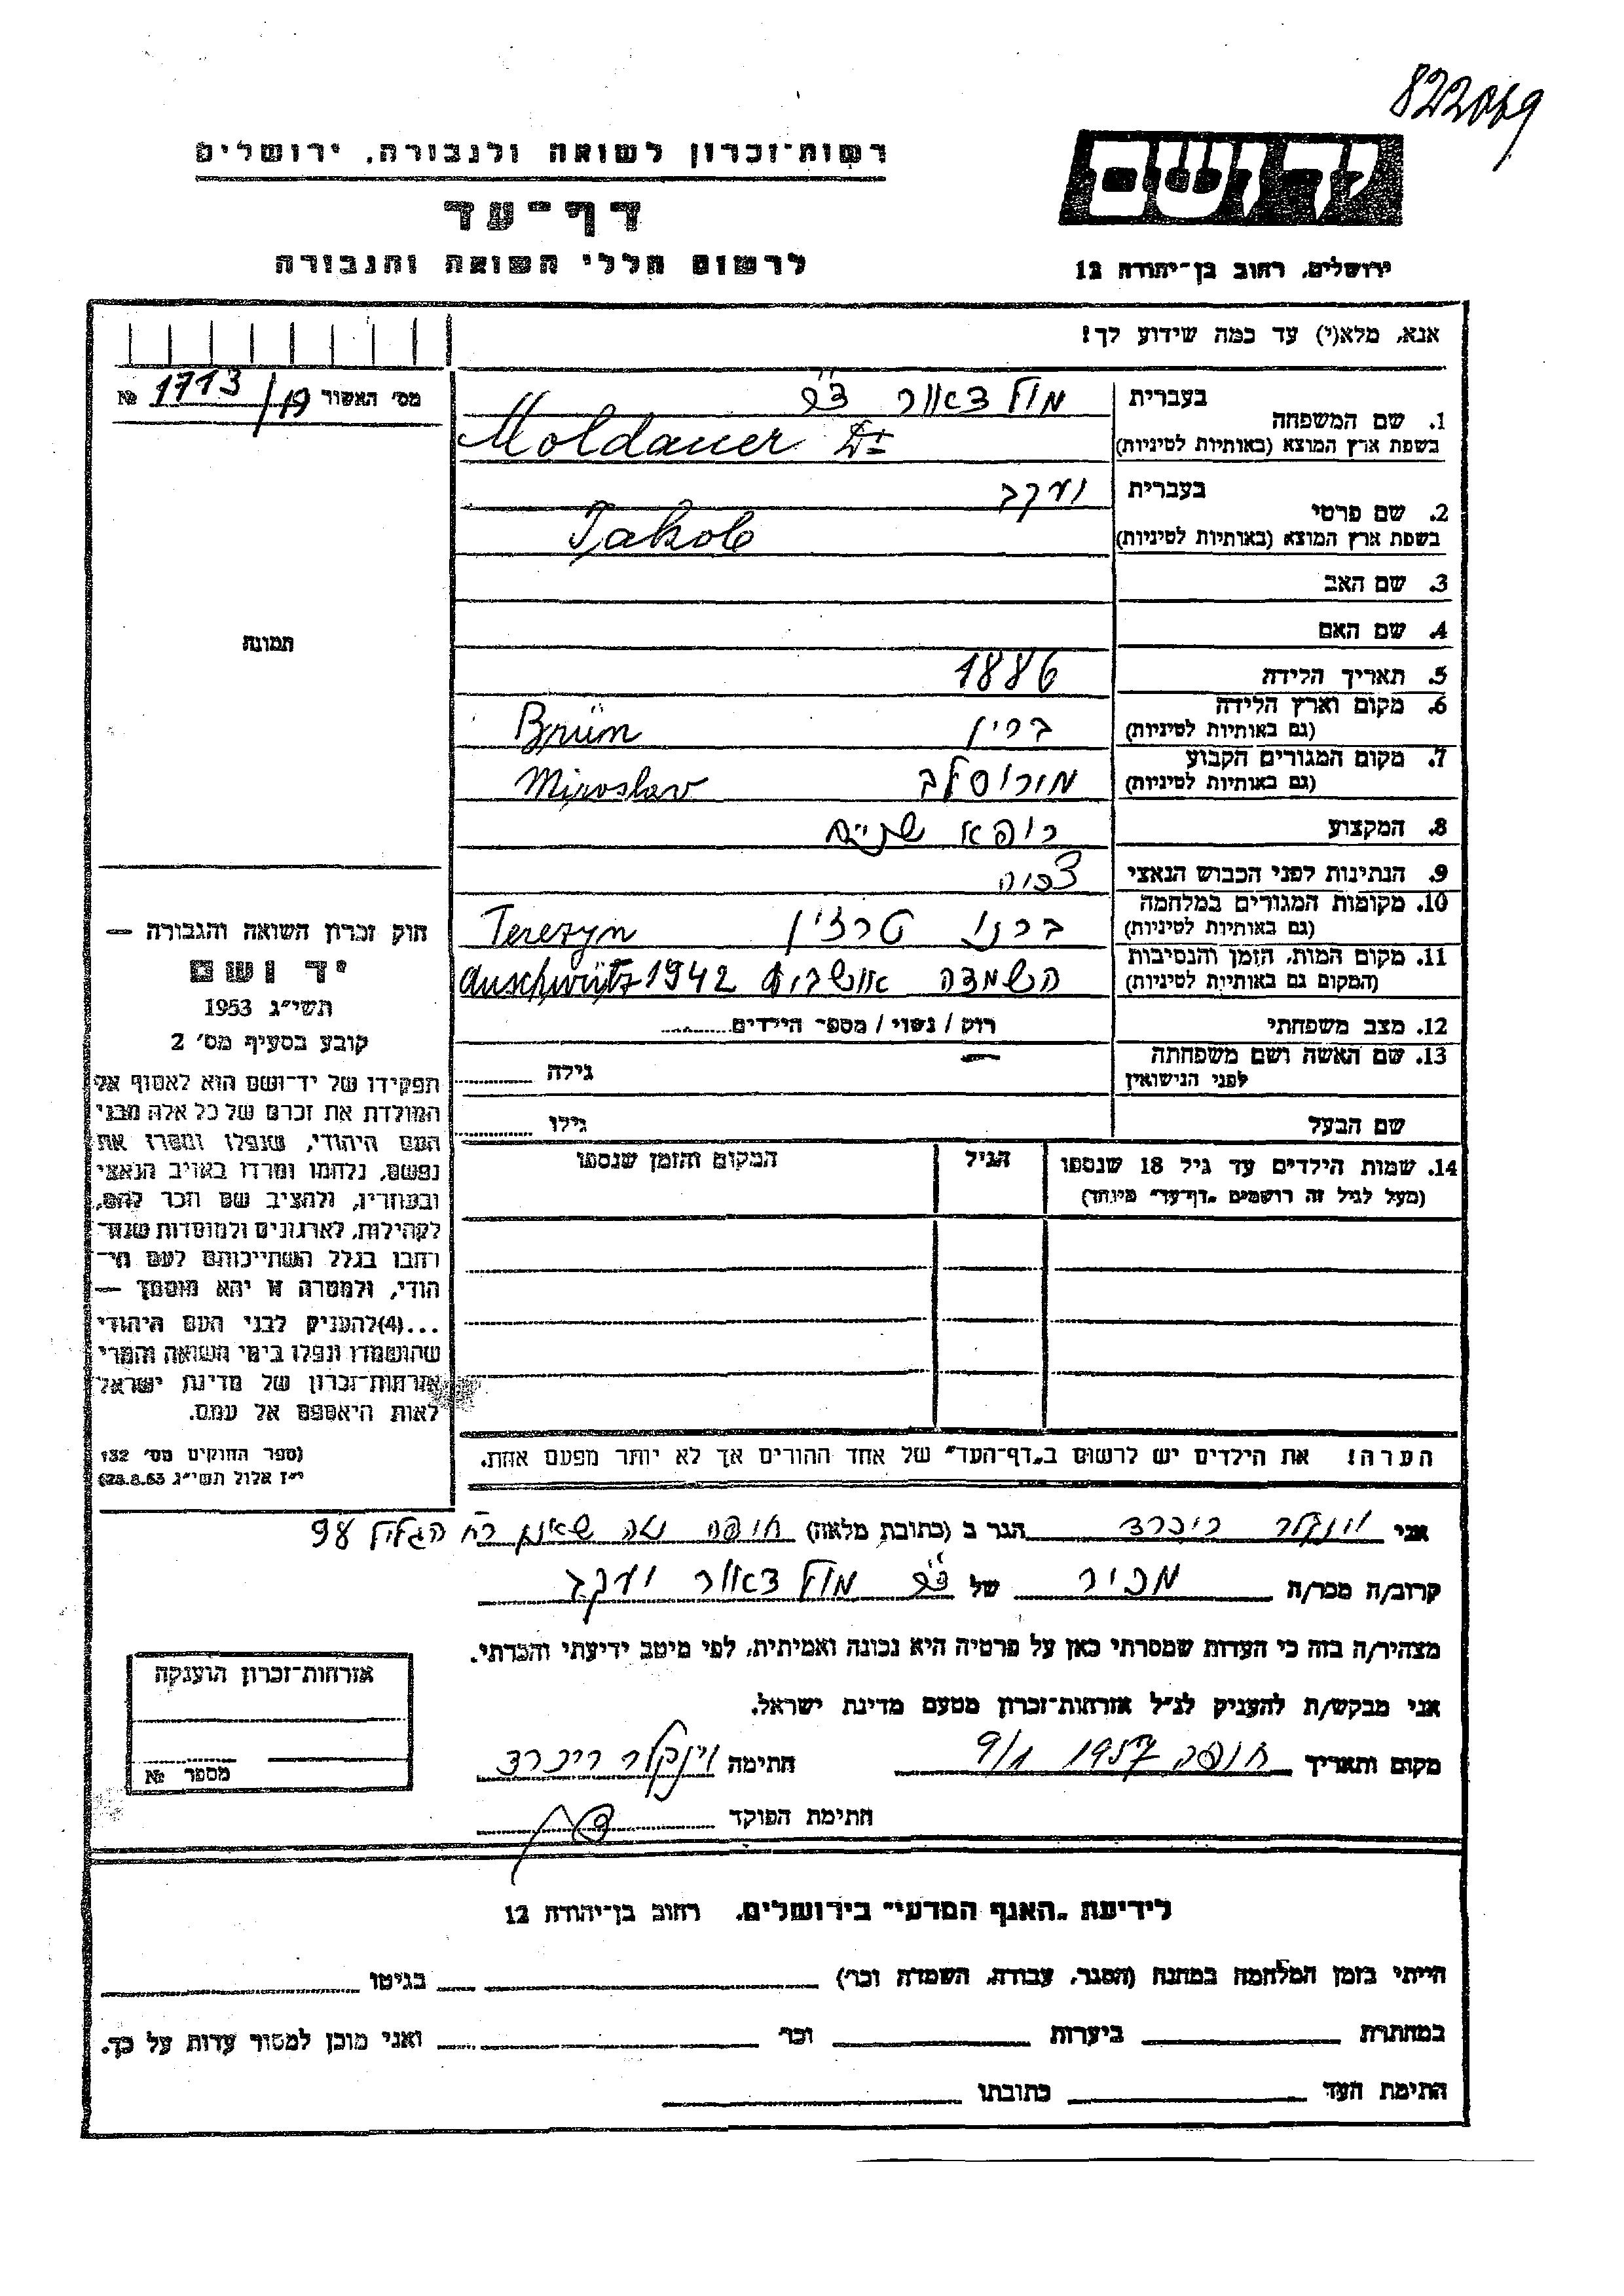 822069
רשות־זכרון לשואה ולגבורה, ירושלים
דף־עד
לרשום חללי השואה והגבורה
יד ושם
ירושלים, רחוב בן־יהודה 12
אנא, מלא(י) עד כמה שידוע לך!
מס׳ האשור 1713/ № 
תמונה
1. שם המשפחה בעברית מולדאור דר׳
בשפת ארץ המוצא (באותיות לטיניות) Moldauer Dr
2. שם פרטי בעברית יעקב
בשפת ארץ המוצא (באותיות לטיניות) Jakob
3. שם האב
4. שם האם
5. תאריך הלידה 1886
6. מקום וארץ הלידה (גם באותיות לטיניות) ברין Brünn
7. מקום המגורים הקבוע (גם באותיות לטיניות) מירוסלב Miroslav
8. המקצוע רופא שניים
9. הנתינות לפני הכבוש הנאצי צכיה
10. מקומות המגורים במלחמה (גם באותיות לטיניות) ברנו טרזין Terezyn
11. מקום המות, הזמן והנסיבות (המקום גם באותיות לטיניות) השמדה אושביץ Auschwütz 1942
12. מצב משפחתי רוק / נשוי / מספר הילדים
13. שם האשה ושם משפחתה לפני הנישואין גילה
שם הבעל גילו
14. שמות הילדים עד גיל 18 שנספו הגיל המקום והזמן שנספו
(מעל לגיל זה רושמים „דף־עד״ מיוחד)
הערה! את הילדים יש לרשום ב„דף־העד״ של אחד ההורים אך לא יותר מפעם אחת.
חוק זכרון השואה והגבורה —
יד ושם
תשי״ג 1953
קובע בסעיף מס׳ 2
תפקידו של יד־ושם הוא לאסוף אל
המולדת את זכרם של כל אלה מבני
העם היהודי, שנפלו ומסרו את
נפשם, נלחמו ומרדו באויב הנאצי
ובעוזריו, ולהציב שם וזכר להם,
לקהילות, לארגונים ולמוסדות שנח־
רבו בגלל השתייכותם לעם הי־
הודי, ולמטרה זו יהא מוסמך —
...(4)להעניק לבני העם היהודי
שהושמדו ונפלו בימי השואה והמרי
אזרחות־זכרון של מדינת ישראל
לאות היאספם אל עמם.
(ספר החוקים מס׳ 132
י״ז אלול תשי״ג 28.8.53)
אני וינקלר ריכרד הגר ב (כתובת מלאה) חיפה נוה שאנן רח׳ הגליל 98
קרוב/ה מכר/ה מכיר של דר׳ מולדאור יעקב
מצהיר/ה בזה כי העדות שמסרתי כאן על פרטיה היא נכונה ואמיתית, לפי מיטב ידיעתי והכרתי.
אני מבקש/ת להעניק לנ״ל אזרחות־זכרון מטעם מדינת ישראל.
מקום ותאריך חיפה 1957 9/1 חתימה וינקלר ריכרד
חתימת הפוקד
אזרחות־זכרון הוענקה
מספר №
לידיעת „האגף המדעי״ בירושלים, רחוב בן־יהודה 12
הייתי בזמן המלחמה במחנה (הסגר, עבודה, השמדה וכו׳) בגיטו
במחתרת ביערות וכו׳ ואני מוכן למסור עדות על כך.
חתימת העד כתובתו